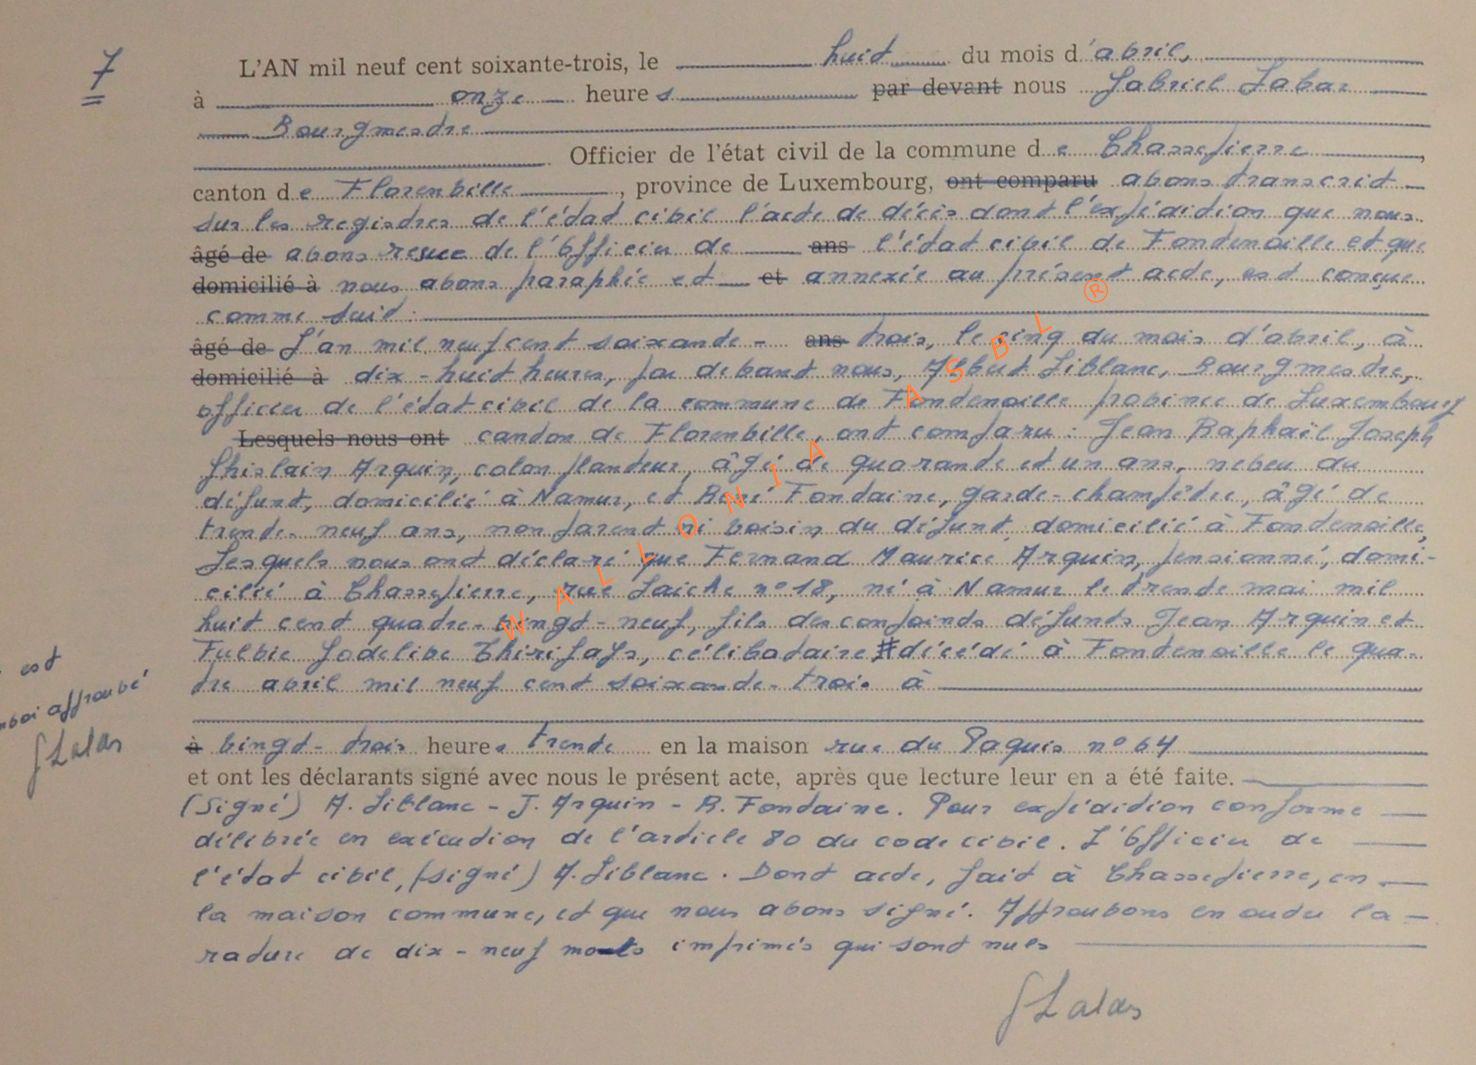 7
L'AN mil neuf cent soixante-trois, le huit du mois d'avril,
à onze heures par devant nous Gabriel Labar
Bourgmestre
Officier de l'état civil de la commune de Chassepierre,
canton de Florenville, province de Luxembourg, ont comparu avons transcrit
sur les registres de l'état civil l'acte de décès dont l'expédition que nous
âgé de avons reçue de l'Officier de ans l'état civil de Fontenoille et que
domicilié à nous avons paraphée et et annexée au présent acte, est conçue
comme suit :
âgé de L'an mil neuf cent soixante- ans trois, le cinq du mois d'avril, à
domicilié à dix-huit heures, par devant nous, Albert Liblanc, Bourgmestre,
officier de l'état civil de la commune de Fontenoille province de Luxembourg
Lesquels nous ont canton de Florenville, ont comparu : Jean Raphaël Joseph
Ghislain Arquin, colon planteur, âgé de quarante et un ans, neveu du
défunt, domicilié à Namur, et René Fontaine, garde-champêtre, âgé de
trente-neuf ans, non parent ni voisin du défunt, domicilié à Fontenoille,
Lesquels nous ont déclaré que Fernand Maurice Arquin, pensionné, domi-
cilié à Chassepierre, rue Laiche n° 18, né à Namur le trente mai mil
huit cent quatre-vingt-neuf, fils des conjoints défunts Jean Arquin et
Fulvie Godelive Thirifays, célibataire # décédé à Fontenoille le qua-
tre avril mil neuf cent soixante-trois à
est
approuvé
à vingt-trois heures trente en la maison rue du Paquis n° 64
et ont les déclarants signé avec nous le présent acte, après que lecture leur en a été faite.
(Signé) A. Liblanc - J. Arquin - R. Fontaine. Pour expédition conforme
délivrée en exécution de l'article 80 du code civil. L'Officier de
l'état civil, (signé) A. Liblanc. Dont acte, fait à Chassepierre, en
la maison commune, et que nous avons signé. Approuvons en outre la
rature de dix-neuf mots imprimés qui sont nuls
WALLONIA ASBL ®